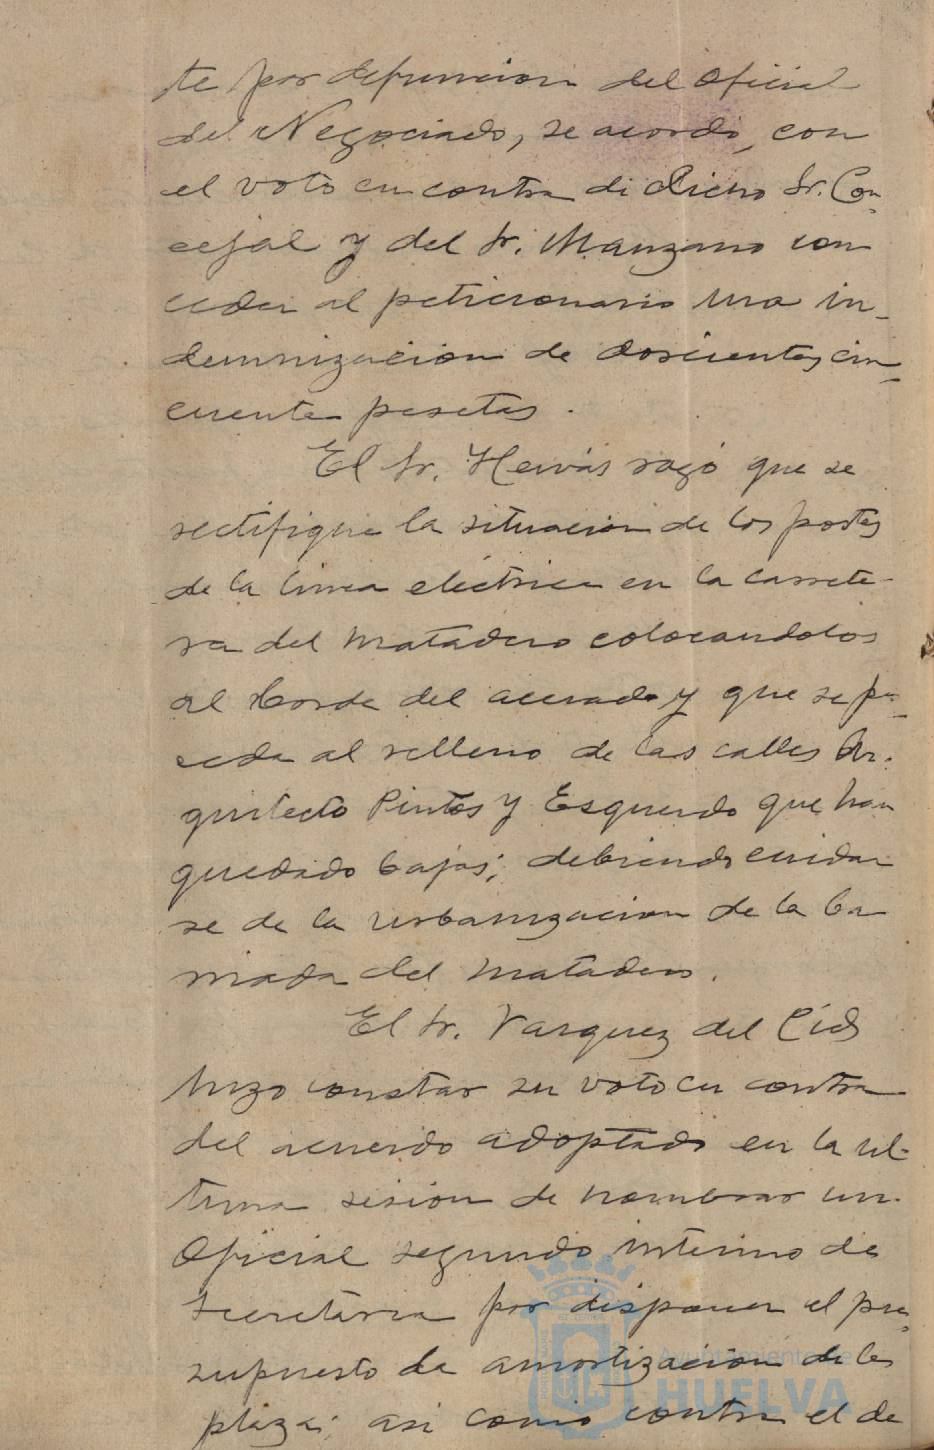 te por defuncion del Oficial
del Negociado, se acordó, con
el voto en contra de dicho Sr. Con-
cejal y del Sr. Manzano con
ceder al peticionario una in-
demnizacion de doscientas cin-
cuenta pesetas.
El Sr. Hervás rogó que se
rectifique la situacion de los postes
de la linea eléctrica en la carrete-
ra del Matadero colocandolos
al borde del acerado y que se pro-
ceda al relleno de las calles Ar-
quitecto Pintos y Esquerdo que han
quedado bajas; debiendo cuidar
se de la urbanizacion de la ba
rriada del Matadero.
El Sr. Vazquez del Cid
hizo constar su voto en contra
del acuerdo adoptado en la ul-
tima sesion de nombrar un
Oficial segundo interino de
Secretaria por disponer el pre-
supuesto la amortizacion de la
plaza; asi como contra el de
Ayuntamiento de
HUELVA